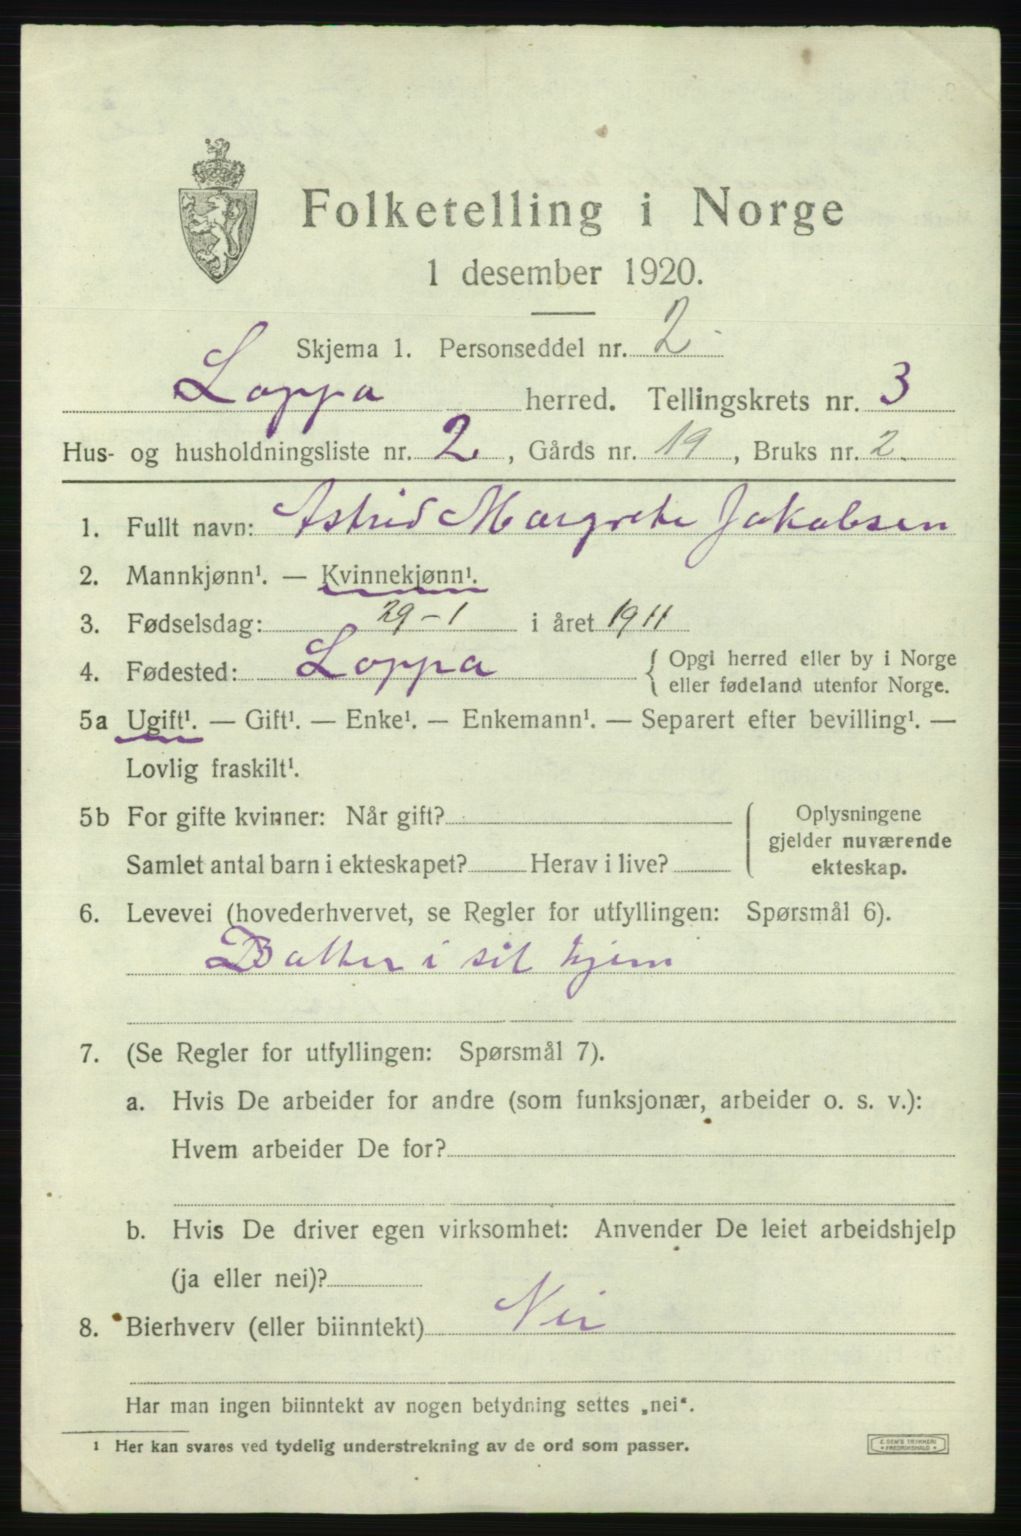 Folketelling i Norge
1 desember 1920.
Skjema 1. Personseddel nr. 2
Loppa herred. Tellingskrets nr. 3
Hus- og husholdningsliste nr. 2, Gårds nr. 19, Bruks nr. 2.
1. Fullt navn: Astrid Margrete Jakobsen
2. Mannkjønn¹. — Kvinnekjønn¹.
3. Fødselsdag: 29-1 i året 1911
4. Fødested: Loppa { Opgi herred eller by i Norge
eller fødeland utenfor Norge.
5a Ugift¹. — Gift¹. — Enke¹. — Enkemann¹. — Separert efter bevilling¹. —
Lovlig fraskilt¹.
5b For gifte kvinner: Når gift?
Samlet antal barn i ekteskapet? Herav i live?
Oplysningene
gjelder nuværende
ekteskap.
6. Levevei (hovederhvervet, se Regler for utfyllingen: Spørsmål 6).
Datter i sit hjem
7. (Se Regler for utfyllingen: Spørsmål 7).
a. Hvis De arbeider for andre (som funksjonær, arbeider o. s. v.):
Hvem arbeider De for?
b. Hvis De driver egen virksomhet: Anvender De leiet arbeidshjelp
(ja eller nei)?
8. Bierhverv (eller biinntekt) Nei
Har man ingen biinntekt av nogen betydning settes „nei“.
¹ Her kan svares ved tydelig understrekning av de ord som passer.
E. SEM'S TRYKKERI
FREDRIKSHALD